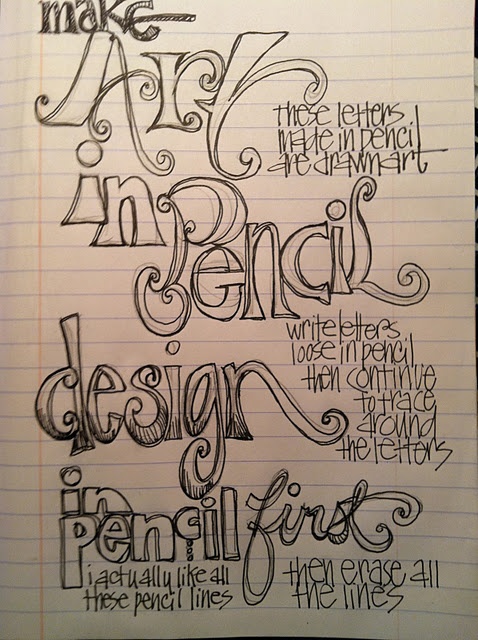 make
Art
these letters
made in pencil
are drawn art
in
Pencil
write letters
loose in pencil
then continue
to trace
around
the letters
design
in
Pencil first
i actually like all
these pencil lines
then erase all
the lines